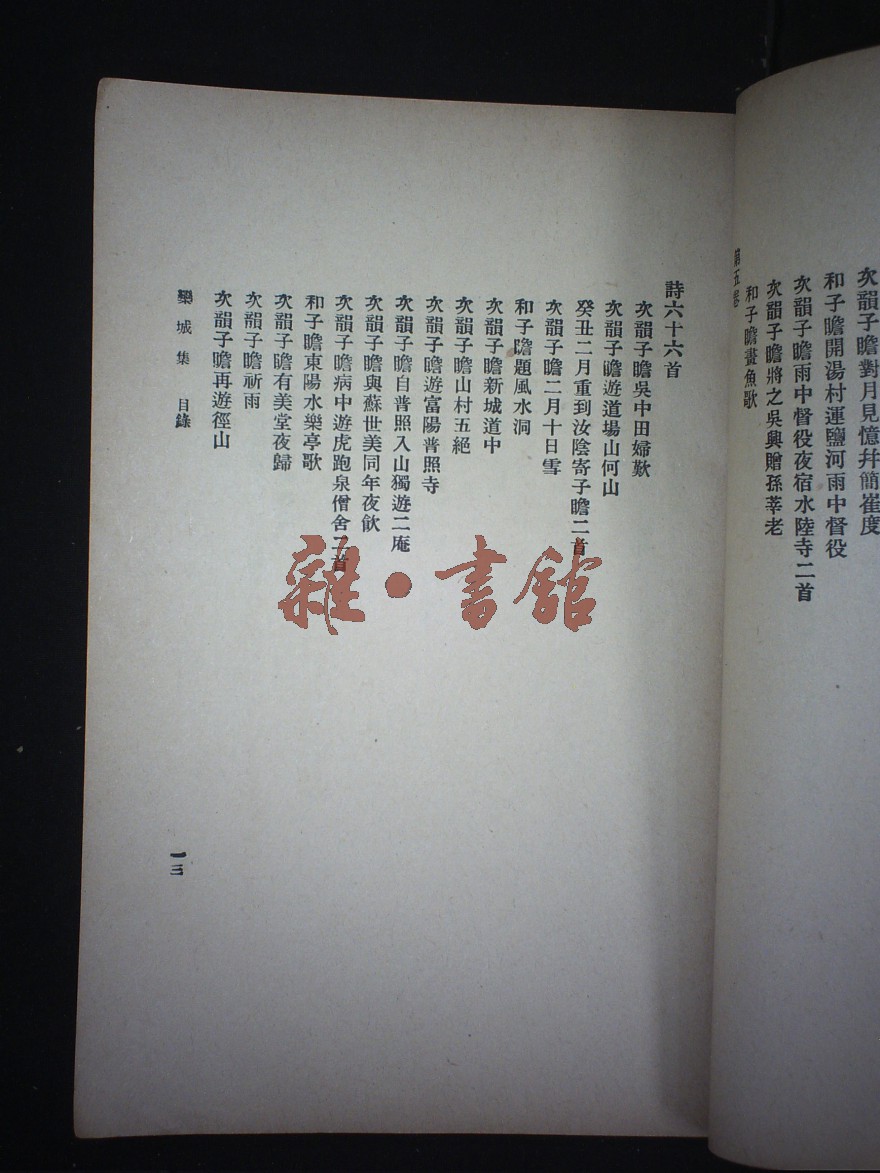 次韻子瞻對月見憶并簡崔度
和子瞻開湯村運鹽河雨中督役
次韻子瞻雨中督役夜宿水陸寺二首
次韻子瞻將之吳興贈孫莘老
和子瞻畫魚歌
第五卷
詩六十六首
次韻子瞻吳中田婦歎
次韻子瞻遊道場山何山
癸丑二月重到汝陰寄子瞻二首
次韻子瞻二月十日雪
和子瞻題風水洞
次韻子瞻新城道中
次韻子瞻山村五絕
次韻子瞻遊富陽普照寺
次韻子瞻自普照入山獨遊二庵
次韻子瞻與蘇世美同年夜飲
次韻子瞻病中遊虎跑泉僧舍二首
和子瞻東陽水樂亭歌
次韻子瞻有美堂夜歸
次韻子瞻祈雨
次韻子瞻再遊徑山
欒城集 目錄
一三
雜·書館